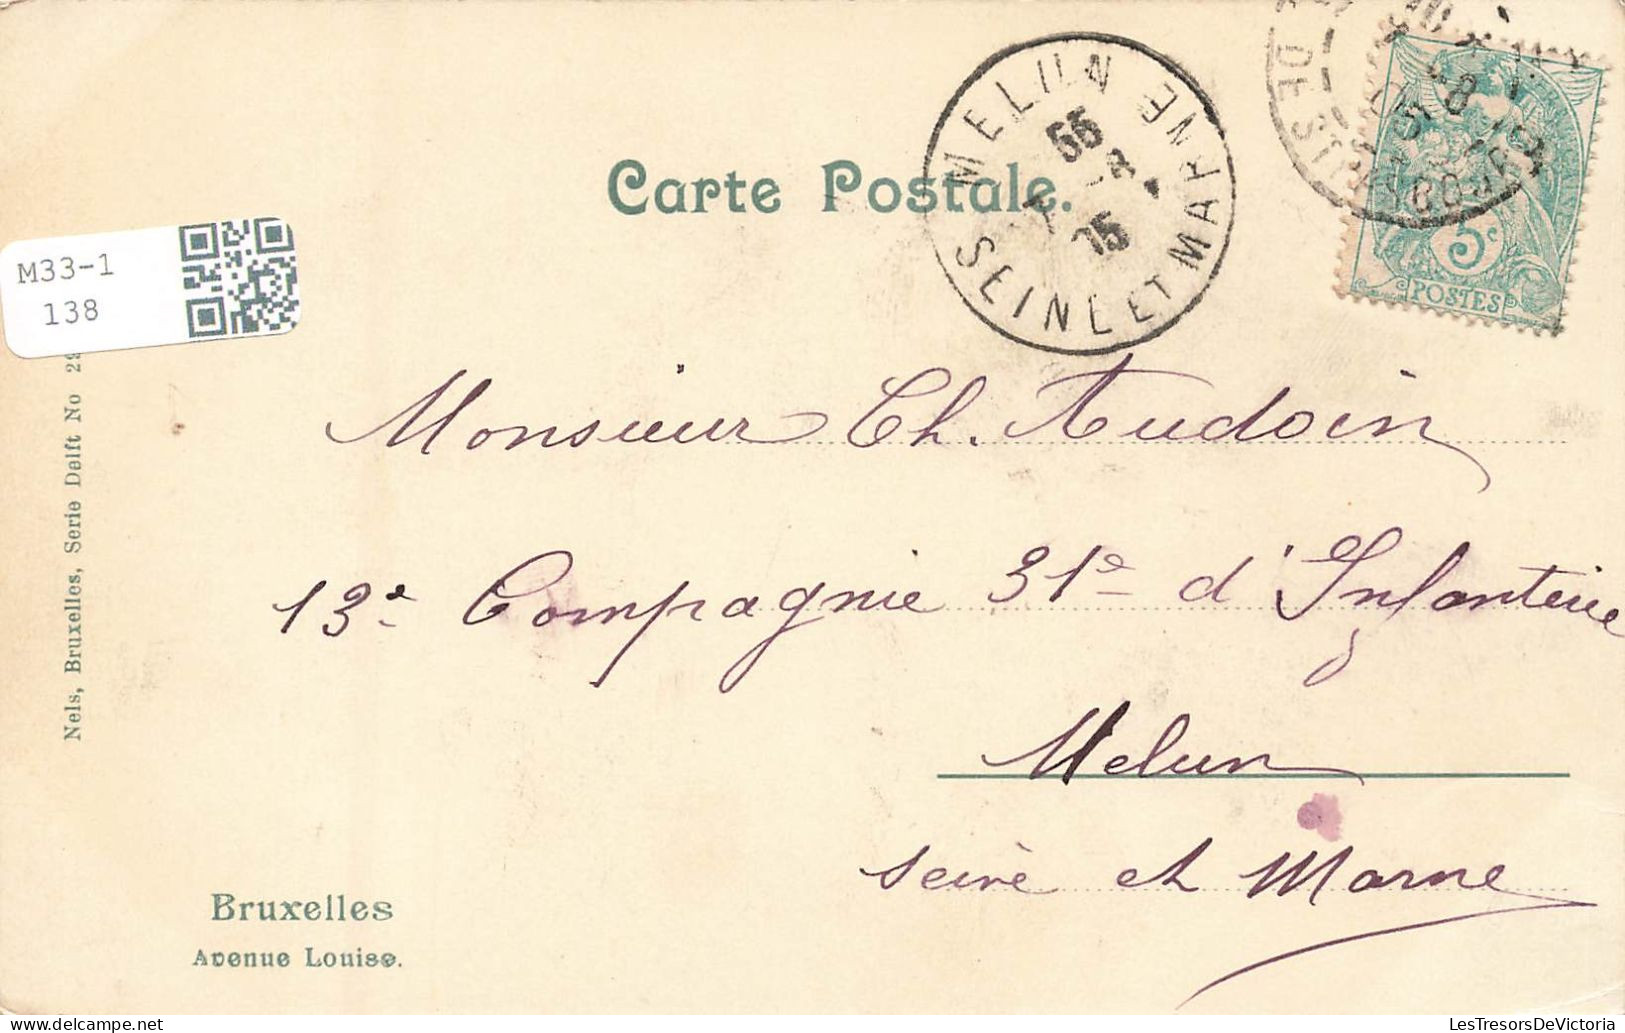 Carte Postale.
MELUN
SEINE ET MARNE
5c
POSTES
M33-1
138
Nels, Bruxelles, Serie Delft No
Monsieur Ch. Audoin
13e Compagnie 31e d'Infanterie
Melun
Seine et Marne
Bruxelles
Avenue Louise.
LesTresorsDeVictoria